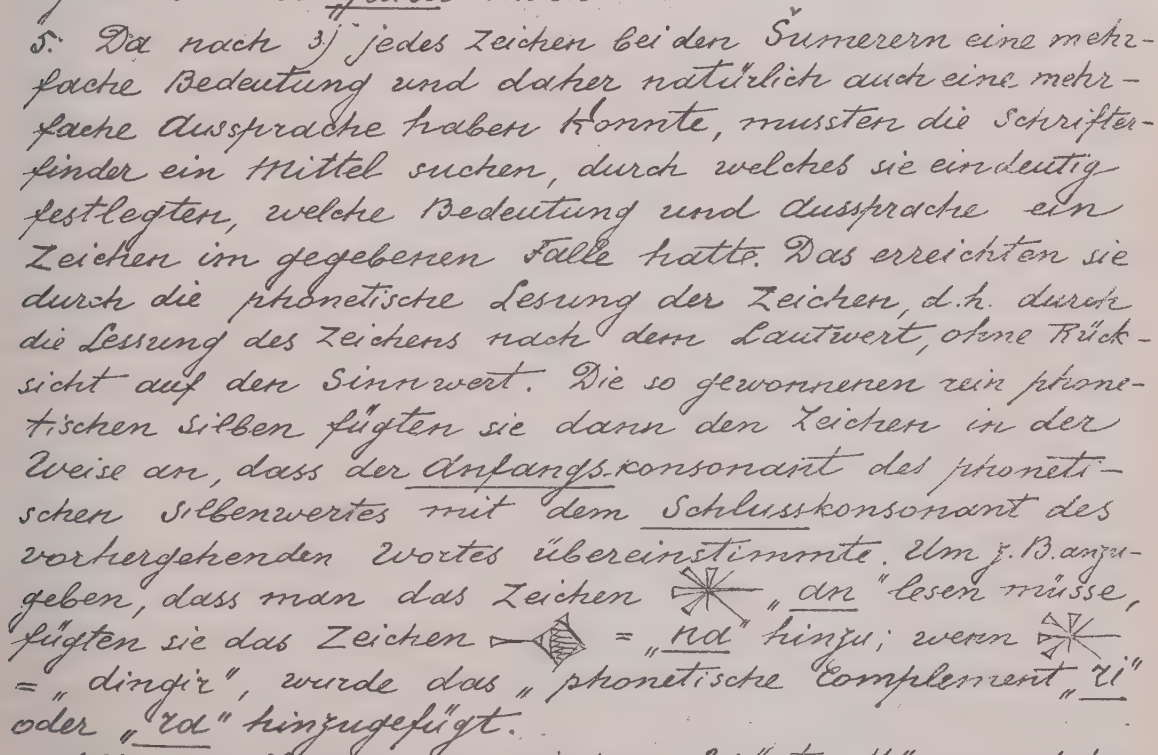 5. Da nach 3) jedes Zeichen bei den Šumerern eine mehr-
fache Bedeutung und daher natürlich auch eine mehr-
fache Aussprache haben konnte, mussten die Schrifter-
finder ein Mittel suchen, durch welches sie eindeutig
festlegten, welche Bedeutung und Aussprache ein
Zeichen im gegebenen Falle hatte. Das erreichten sie
durch die phonetische Lesung der Zeichen, d.h. durch
die Lessung des Zeichens nach dem Lautwert, ohne Rück-
sicht auf den Sinnwert. Die so gewonnenen rein phone-
tischen Silben fügten sie dann den Zeichen in der
Weise an, dass der Anfangskonsonant des phoneti-
schen Silbenwertes mit dem Schlusskonsonant des
vorhergehenden Wortes übereinstimmte. Um z.B. anzu-
geben, dass man das Zeichen 𒀭 „an" lesen müsse,
fügten sie das Zeichen = „na" hinzu; wenn 𒀭
= „dingir", wurde das „phonetische Complement „ri"
oder „ra" hinzugefügt.